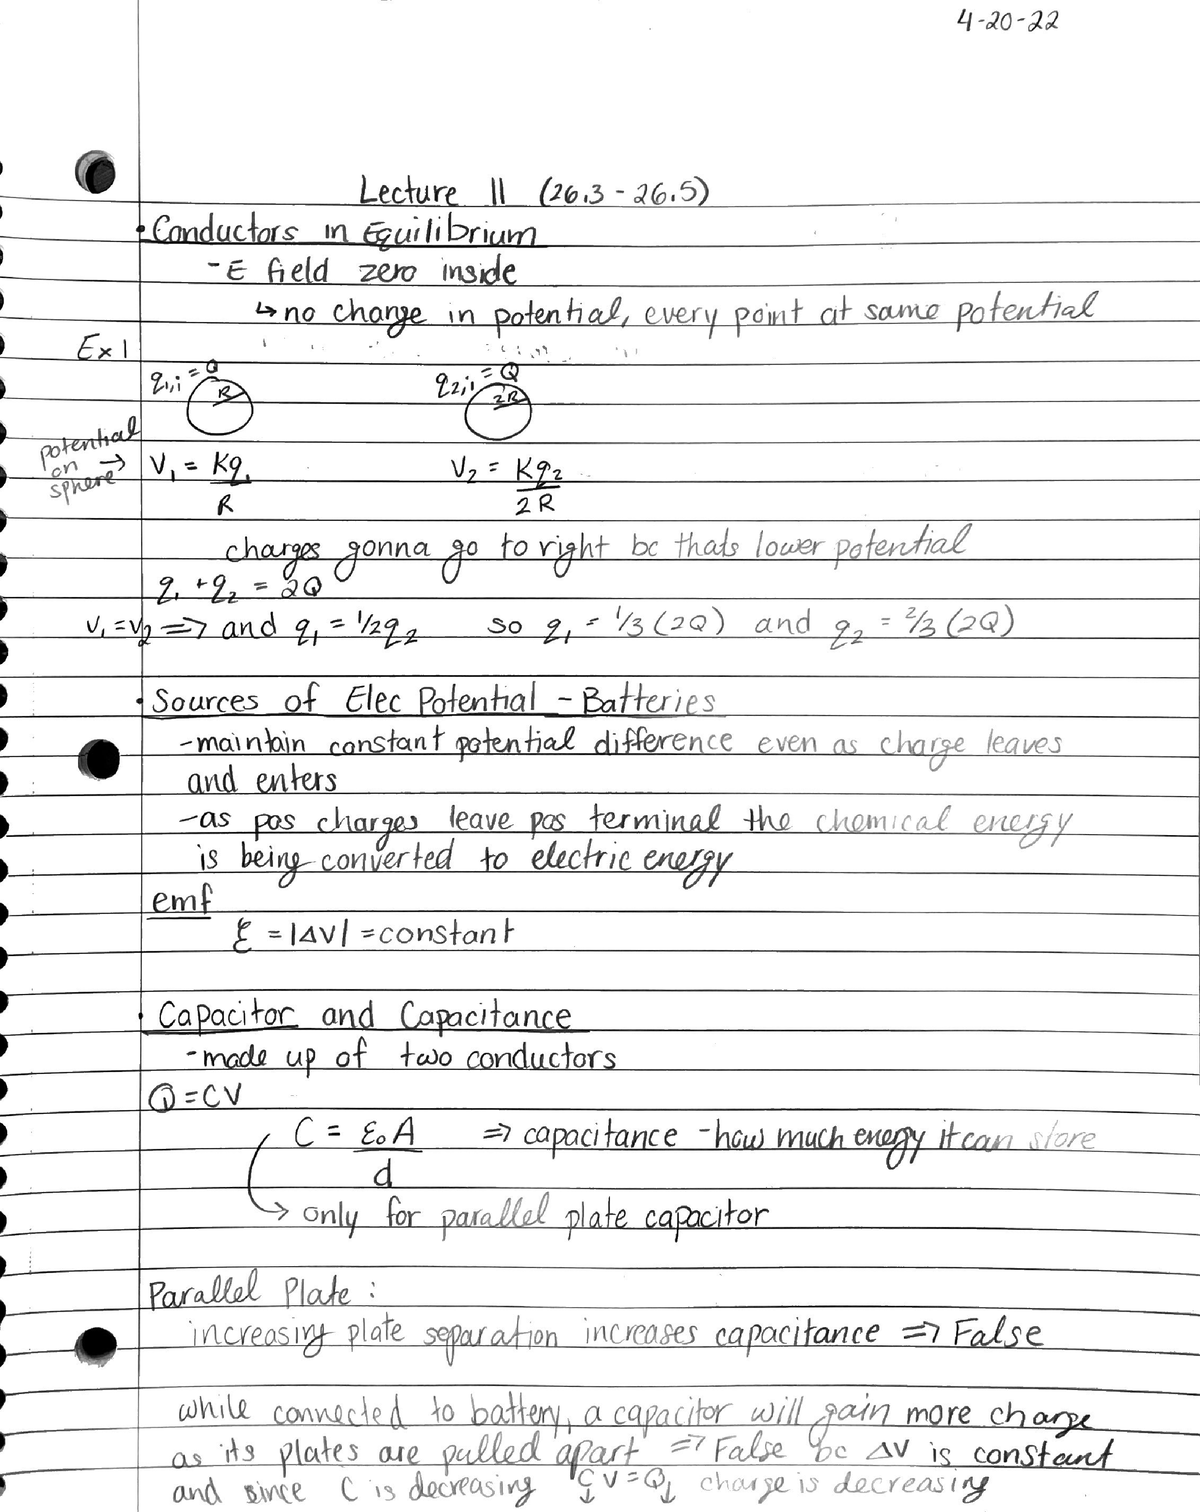 4-20-22
Lecture 11 (26.3 - 26.5)
• Conductors in Equilibrium
- E field zero inside
↳ no change in potential, every point at same potential
Ex 1
q₁,i = Q
R
q₂,i = Q
2R
potential on sphere → V₁ = Kq₁/R
V₂ = Kq₂/2R
charges gonna go to right bc thats lower potential
q₁ + q₂ = 2Q
V₁ = V₂ => and q₁ = 1/2 q₂ so q₁ = 1/3 (2Q) and q₂ = 2/3 (2Q)
• Sources of Elec Potential - Batteries
- maintain constant potential difference even as charge leaves
and enters
- as pos charges leave pos terminal the chemical energy
is being converted to electric energy
emf
ℰ = |ΔV| = constant
• Capacitor and Capacitance
- made up of two conductors
Q = CV
C = ε₀A/d => capacitance - how much energy it can store
↳ only for parallel plate capacitor
Parallel Plate :
increasing plate separation increases capacitance => False
while connected to battery, a capacitor will gain more charge
as its plates are pulled apart => False bc ΔV is constant
and since C is decreasing C↓ V = Q↓ charge is decreasing